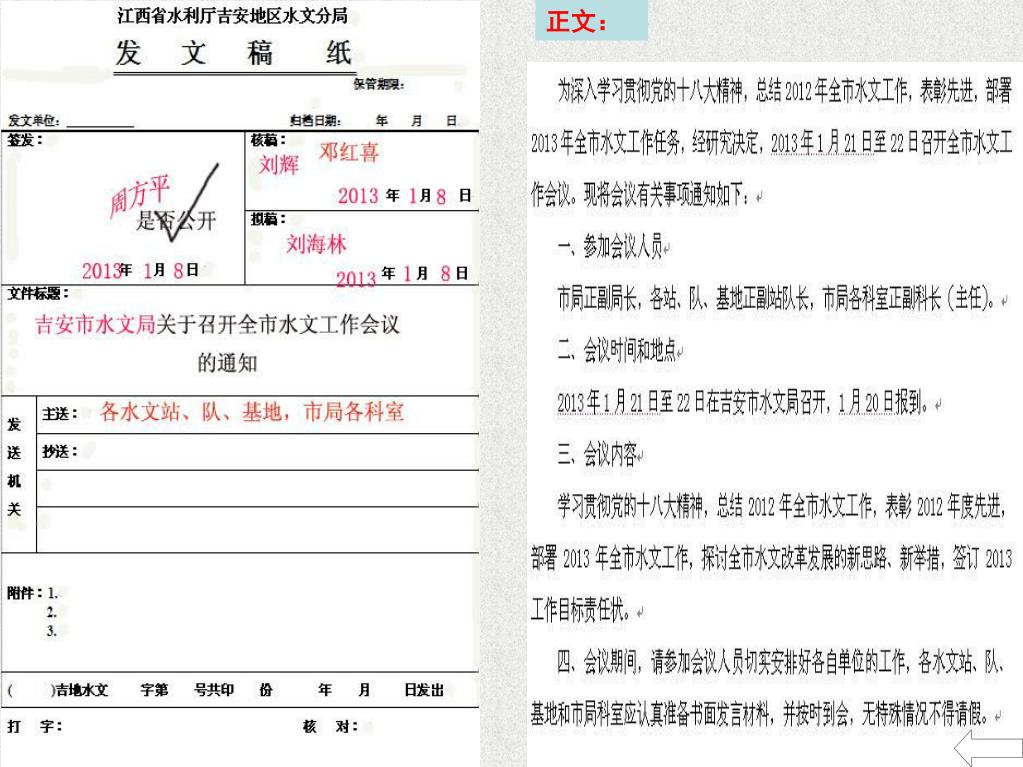 江西省水利厅吉安地区水文分局
发 文 稿 纸
保管期限：
发文单位： 归档日期： 年 月 日
签发：
周方平
是否公开
2013年 1月 8日
核稿：
刘辉 邓红喜
2013 年 1月 8 日
拟稿：
刘海林
2013 年 1月 8 日
文件标题：
吉安市水文局关于召开全市水文工作会议
的通知
发送机关
主送： 各水文站、队、基地，市局各科室
抄送：
附件：1.
2.
3.
( )吉地水文 字第 号共印 份 年 月 日发出
打 字： 核 对：
正文：
为深入学习贯彻党的十八大精神，总结 2012 年全市水文工作，表彰先进，部署
2013 年全市水文工作任务，经研究决定，2013 年 1 月 21 日至 22 日召开全市水文工
作会议。现将会议有关事项通知如下：
一、参加会议人员
市局正副局长，各站、队、基地正副站队长，市局各科室正副科长（主任）。
二、会议时间和地点
2013 年 1 月 21 日至 22 日在吉安市水文局召开，1 月 20 日报到。
三、会议内容
学习贯彻党的十八大精神，总结 2012 年全市水文工作，表彰 2012 年度先进，
部署 2013 年全市水文工作，探讨全市水文改革发展的新思路、新举措，签订 2013
工作目标责任状。
四、会议期间，请参加会议人员切实安排好各自单位的工作，各水文站、队、
基地和市局科室应认真准备书面发言材料，并按时到会，无特殊情况不得请假。